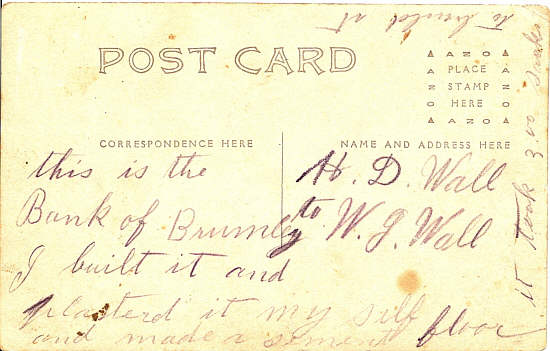 POST CARD
AZO
PLACE
STAMP
HERE
AZO
CORRESPONDENCE HERE
NAME AND ADDRESS HERE
this is the
Bank of Brumley
I built it and
plasterd it my self
and made a sement floor
H. D. Wall
to W. J. Wall
it took 3.00
to build it